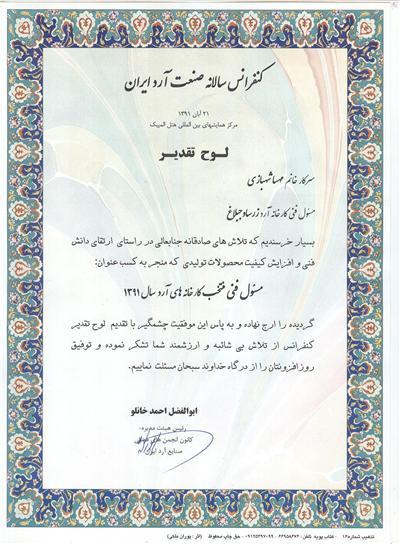 کنفرانس سالانه صنعت آرد ایران
۲۱ آبان ۱۳۹۱
مرکز همایشهای بین المللی هتل المپیک
لوح تقدیر
سرکار خانم مهسا شهبازی
مسئول فنی کارخانه آرد زرساد جبلاغ
بسیار خرسندیم که تلاش های صادقانه جنابعالی در راستای ارتقای دانش
فنی و افزایش کیفیت محصولات تولیدی که منجر به کسب عنوان:
مسئول فنی منتخب کارخانه های آرد سال ۱۳۹۱
گردیده را ارج نهاده و به پاس این موفقیت چشمگیر با تقدیم لوح تقدیر
کنفرانس از تلاش بی شائبه و ارزشمند شما تشکر نموده و توفیق
روزافزونتان را از درگاه خداوند سبحان مسئلت نماییم.
ابوالفضل احمد خانلو
رئیس هیئت مدیره
کانون انجمن های صنفی
صنایع آرد ایران
تذهیب شماره ۱۶ - کتاب پویه تلفن: ۶۶۹۵۸۶۷۶ - ۰۹۱۲۵۲۹۷۰۹۹ - حق چاپ محفوظ (اثر: پوران ملکی)